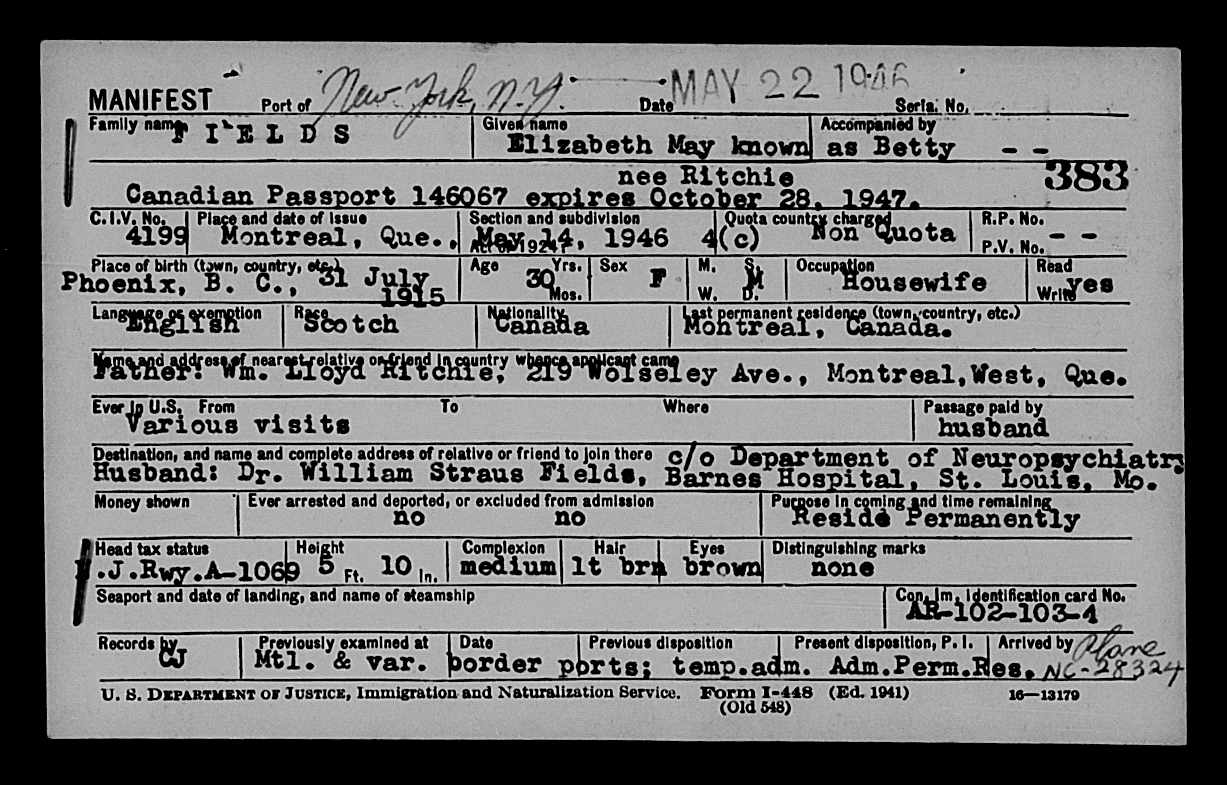 MANIFEST Port of New York, N.Y. Date MAY 22 1946 Serial No.
Family name FIELDS Given name Elizabeth May known as Betty Accompanied by - -
nee Ritchie 383
Canadian Passport 146067 expires October 28, 1947.
C.I.V. No. Place and date of issue Section and subdivision Quota country charged R.P. No.
4199 Montreal, Que., May 14, 1946 4(c) Non Quota - -
Act of 1924 P.V. No.
Place of birth (town, country, etc.) Age Yrs. Sex M. S. Occupation Read
Phoenix, B. C., 31 July 30 F M Housewife yes
1915 Mos. W. D. Write
Language or exemption Race Nationality Last permanent residence (town, country, etc.)
English Scotch Canada Montreal, Canada.
Name and address of nearest relative or friend in country whence applicant came
Father: Wm. Lloyd Ritchie, 219 Wolseley Ave., Montreal,West, Que.
Ever in U.S. From To Where Passage paid by
Various visits husband
Destination, and name and complete address of relative or friend to join there c/o Department of Neuropsychiatry
Husband: Dr. William Straus Fields, Barnes Hospital, St. Louis, Mo.
Money shown Ever arrested and deported, or excluded from admission Purpose in coming and time remaining
no no Reside Permanently
Head tax status Height Complexion Hair Eyes Distinguishing marks
.J.Rwy.A-1069 5 Ft. 10 In. medium lt brn brown none
Seaport and date of landing, and name of steamship Con. Im. Identification card No.
AR-102-103-4
Records by Previously examined at Date Previous disposition Present disposition, P. I. Arrived by Plane
CJ Mtl. & var. border ports; temp.adm. Adm.Perm.Res. NC-28324
U. S. DEPARTMENT OF JUSTICE, Immigration and Naturalization Service. Form I-448 (Ed. 1941) 16—13179
(Old 548)